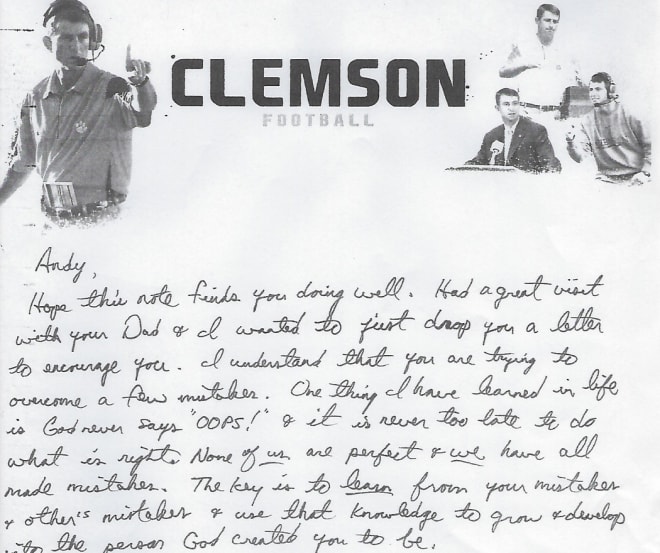 CLEMSON
FOOTBALL
Andy,
Hope this note finds you doing well. Had a great visit
with your Dad & I wanted to just drop you a letter
to encourage you. I understand that you are trying to
overcome a few mistakes. One thing I have learned in life
is God never says "OOPS!" & it is never too late to do
what is right. None of us are perfect & we have all
made mistakes. The key is to learn from your mistakes
& other's mistakes & use that knowledge to grow & develop
into the person God created you to be.